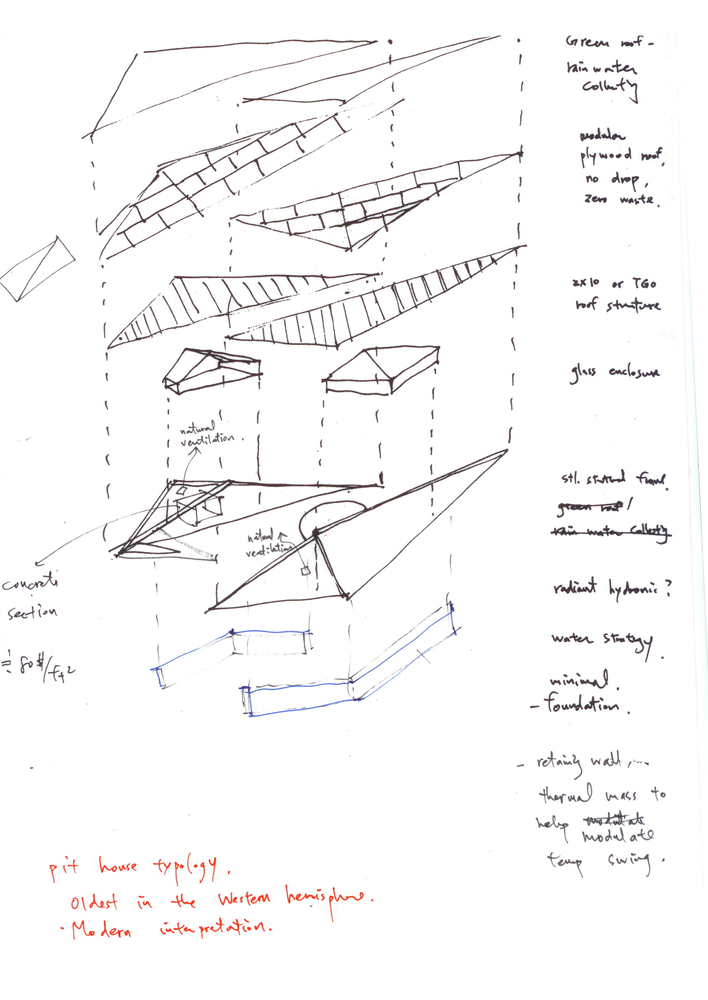 Green roof -
rain water
collectg
modular
plywood roof,
no drop,
zero waste.
2x10 or TGO
roof structure
glass enclosure
natural
ventilation.
stl. frame.
green roof /
rain water collectg
natural
ventilation
concrete
section
radiant hydronic?
80 $/ft2
water strategy.
minimal.
- foundation.
- retaing wall,...
thermal mass to
help modulate
modulate
temp swing.
pit house typology.
Oldest in the Western hemisphere.
· Modern interpretation.